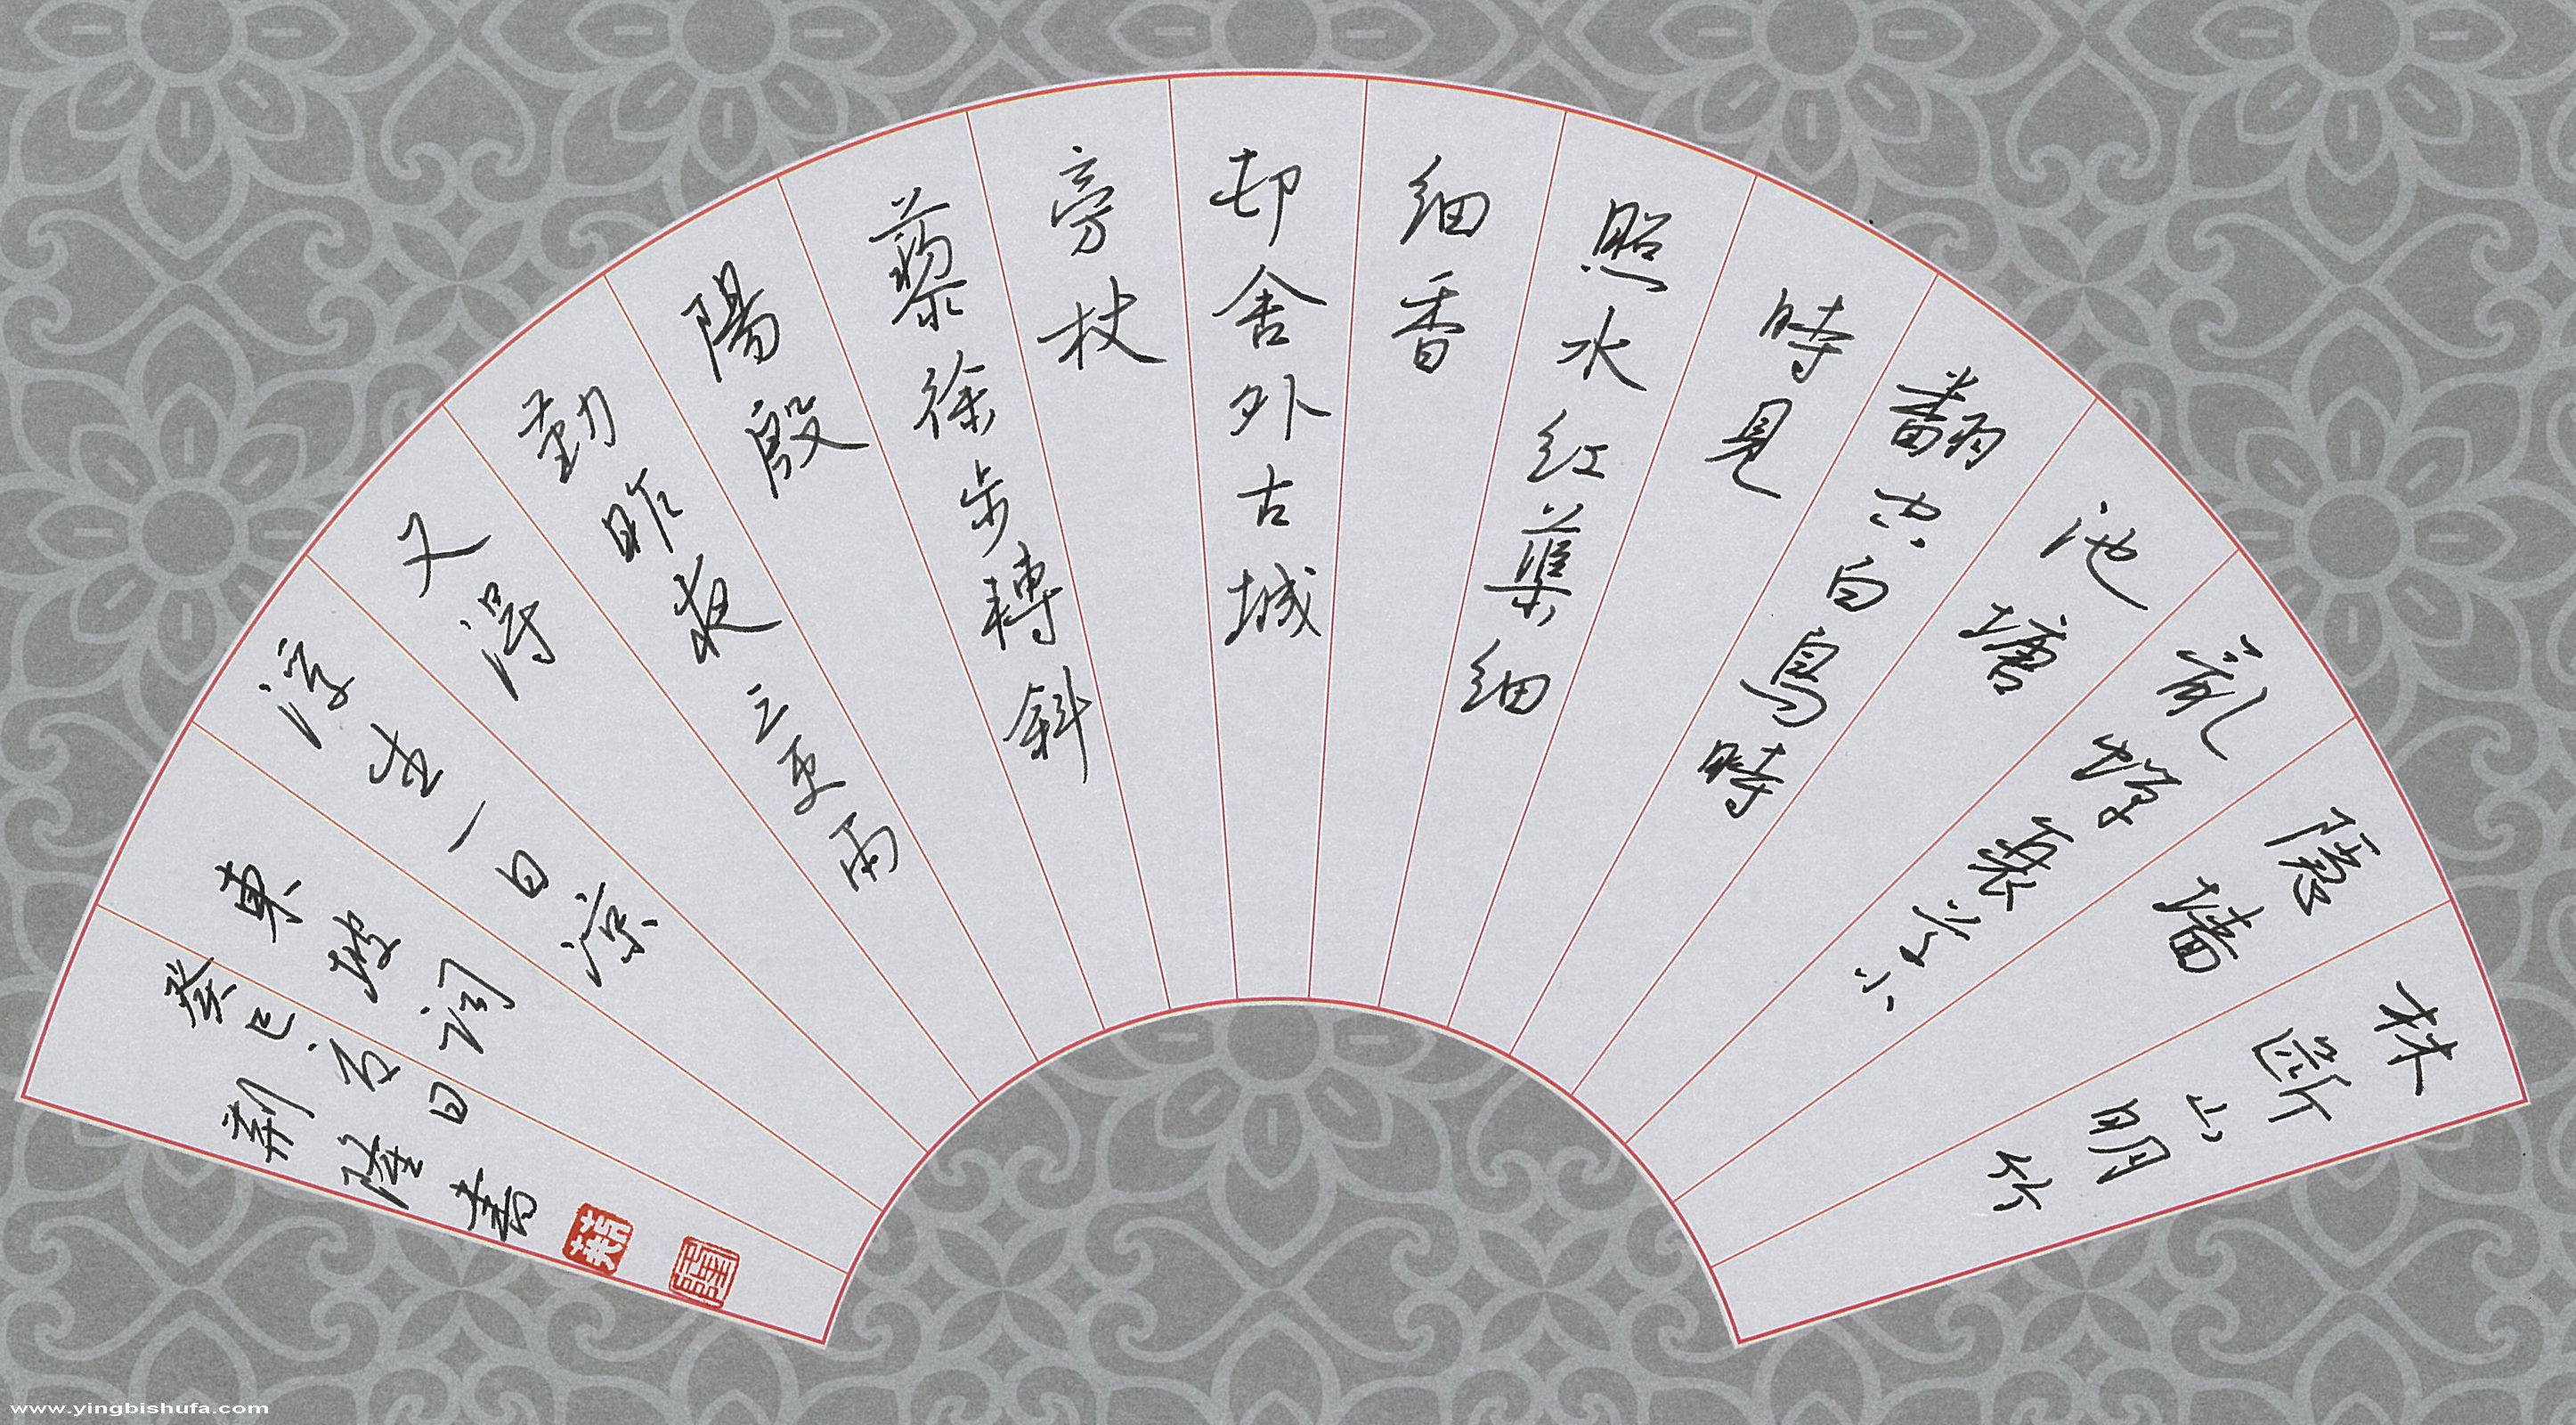 林斷山明竹
隱墻
亂蟬衰草小
池塘
翻空白鳥時
時見
照水红蕖细
细香
邨舍外古城
旁杖
藜徐步轉斜
陽殷
勤昨夜三更雨
又得
浮生一日涼
東坡詞
癸巳 日
荆隆書
www.yingbishufa.com